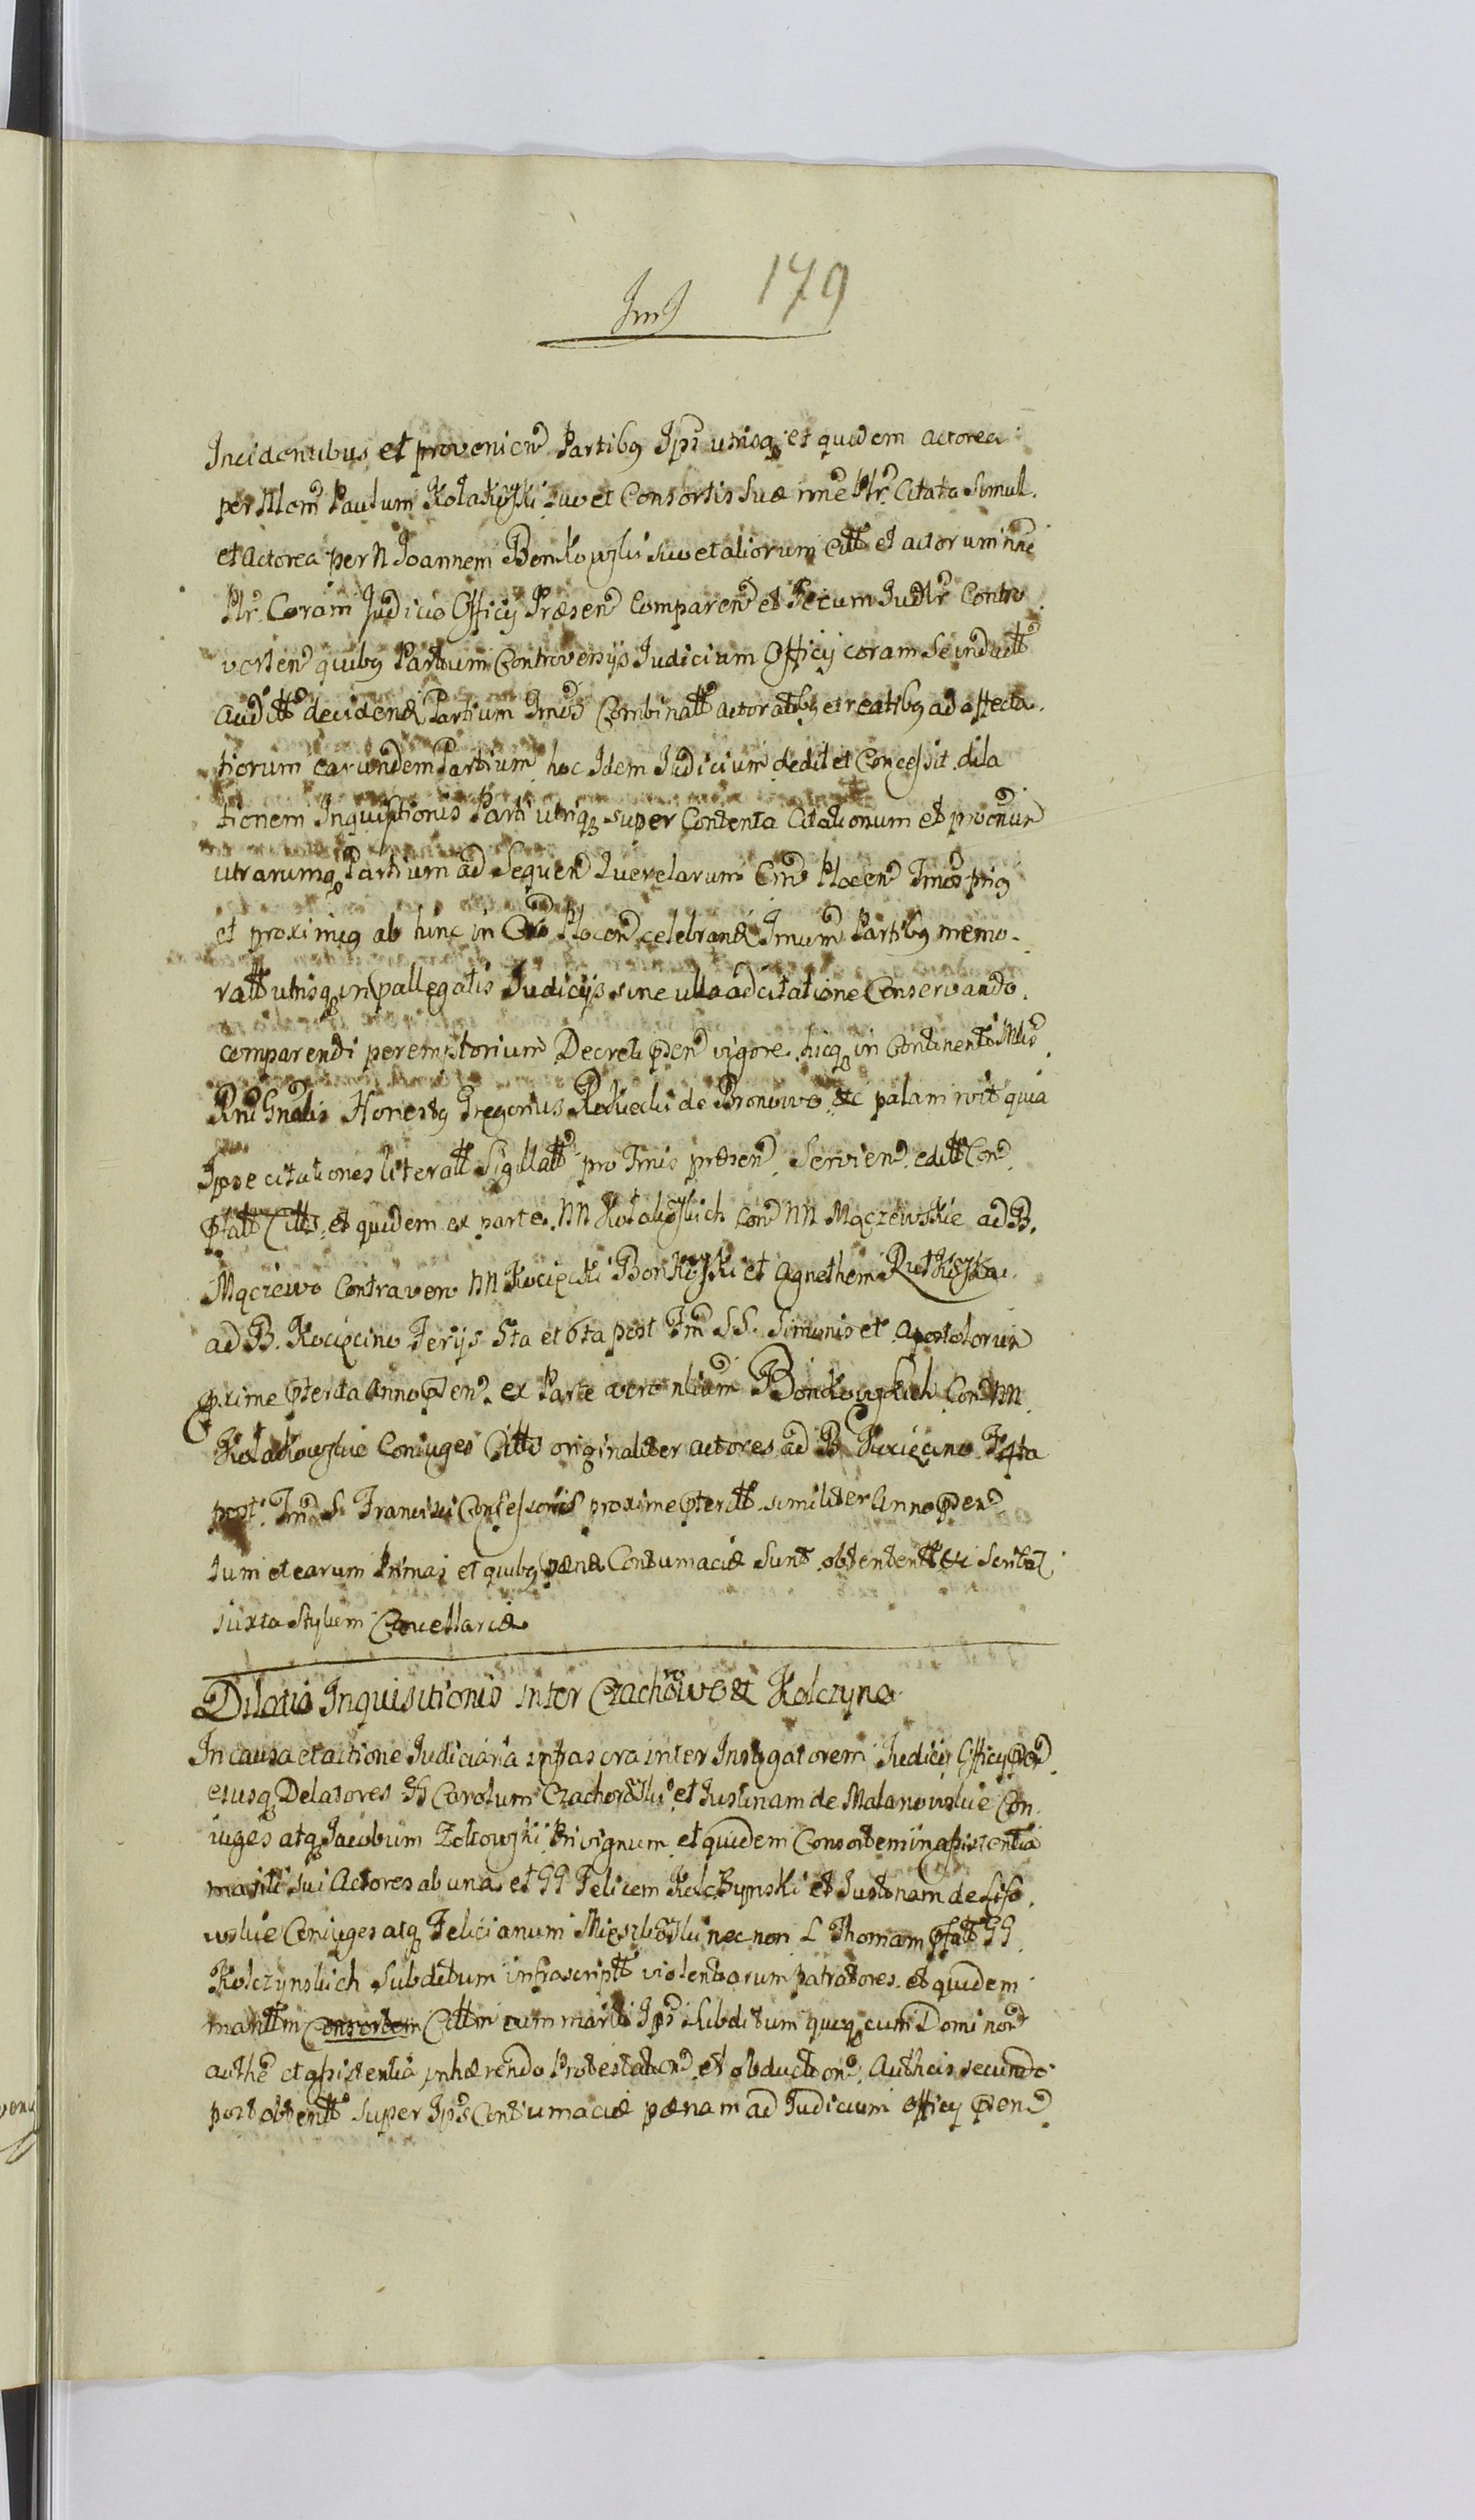 179
Incidentibus et provenien Partibq Ips utrisq et quidem actorea
per Paulum Kołakoski suo et Consortis Suæ nne Nr Citata Simul
et Actorea per N Joannem Bonkowski suo et aliorum Citt et actorum nne
Nr Coram Judicio Officij Præsen Comparen et Secum Judlr Contro
verten quibq Partium Controversijs Judicium Officij coram Se induett
auditt deciden Partium Combinatt actoratibq et reatibq ad affecta
tiorum earundem Partium hoc Idem Judicium dedit et Concessit dila
tionem Inquisitionis Parti utriq super Contenta Citationum et
utrarumq Partium ad Sequen Querelarum Plocen
et proximiq ab hinc in Ploc celebran Partibq memo
ratt utrisq in pallegatis Judicijs sine ulla adcitatione Conservando
comparendi peremptorium Decreti psen vigore hicq in Continenti
Gnalis Honestq Gregorius de Bronowo etc palam rvit quia
Ipse citationes literatt Sigillatt pro Tmis præsen Servien editt Con
pfatt Citts et quidem ex parte NN Kołakoskich Con NN Mączewskie ad B.
Mączewo Contra vero NN Kocięcki Bonkoski et Agnethem Rutkoska
ad B. Kocięcino Ferijs 5ta et 6ta post Fm SS. Simonis et Apostolorum
pxime pterita Anno psen ex Parte vero nlium Bonkowskich Con NN
Kołakowskie Coniuges Citts originaliter actores ad B Kocięcino F 4ta
post Fm S. Francisci Confessoris proxime pteritt similiter Anno psen
Tum et earum Primas et quibq pæna Contumaciæ Sunt obtentett etc Scribal
iuxta Stylum Cancellariæ
Dilatio Inquisitionis inter Czachowo et Kolczyno
In causa et actione Judiciaria infrascra inter Instigatorem Judicij Officij psen
eiusq Delatores GG Carolum Czachorski et Justinam de Malanowskie Con
iuges atq Jacobum Zołtowski Privignum et quidem Consortem in assistentia
mariti sui Actores ab una et GG Felicem Kolczynski et Justinam de Liso
wskie Coniuges atq Felicianum nec non L Thomam pfatt GG
Kolczynskich Subditum infrascriptt violentiarum patratores et quidem
maritm Consortem Cittm cum mariti Ips Subditum quoq cum Dominor
authe et assistentia inhærendo Protestation et obduction Autheis secundo
post obtentt super Ips Contumaciæ pænam ad Judicium Officij psen